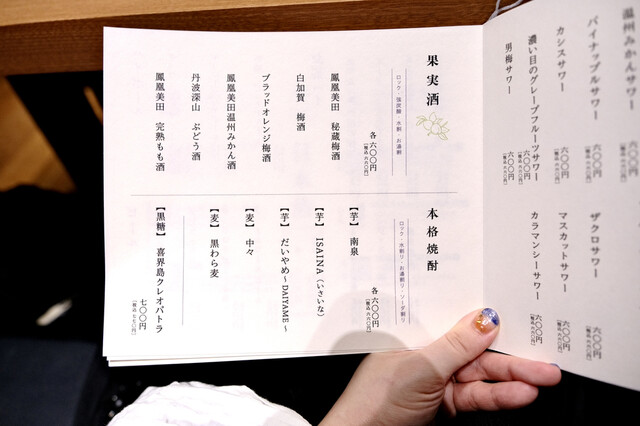 温州みかんサワー
パイナップルサワー
六〇〇円
カシスサワー
六〇〇円
(税込 六六〇円)
濃い目のグレープフルーツサワー
六〇〇円
(税込 六六〇円)
男梅サワー
六〇〇円
(税込 六六〇円)
ザクロサワー
六〇〇円
マスカットサワー
六〇〇円
(税込 六六〇円)
カラマンシーサワー
六〇〇円
(税込 六六〇円)
果実酒
ロック・強炭酸・水割・お湯割
各 六〇〇円
(税込 六六〇円)
鳳凰美田 秘蔵梅酒
白加賀 梅酒
ブラッドオレンジ梅酒
鳳凰美田温州みかん酒
丹波深山 ぶどう酒
鳳凰美田 完熟もも酒
本格焼酎
ロック・水割り・お湯割り・ソーダ割り
各 六〇〇円
(税込 六六〇円)
【芋】 南泉
【芋】 ISAINA(いさいな)
【芋】 だいやめ～DAIYAME～
【麦】 中々
【麦】 黒わら麦
【黒糖】 喜界島クレオパトラ
七〇〇円
(税込 七七〇円)